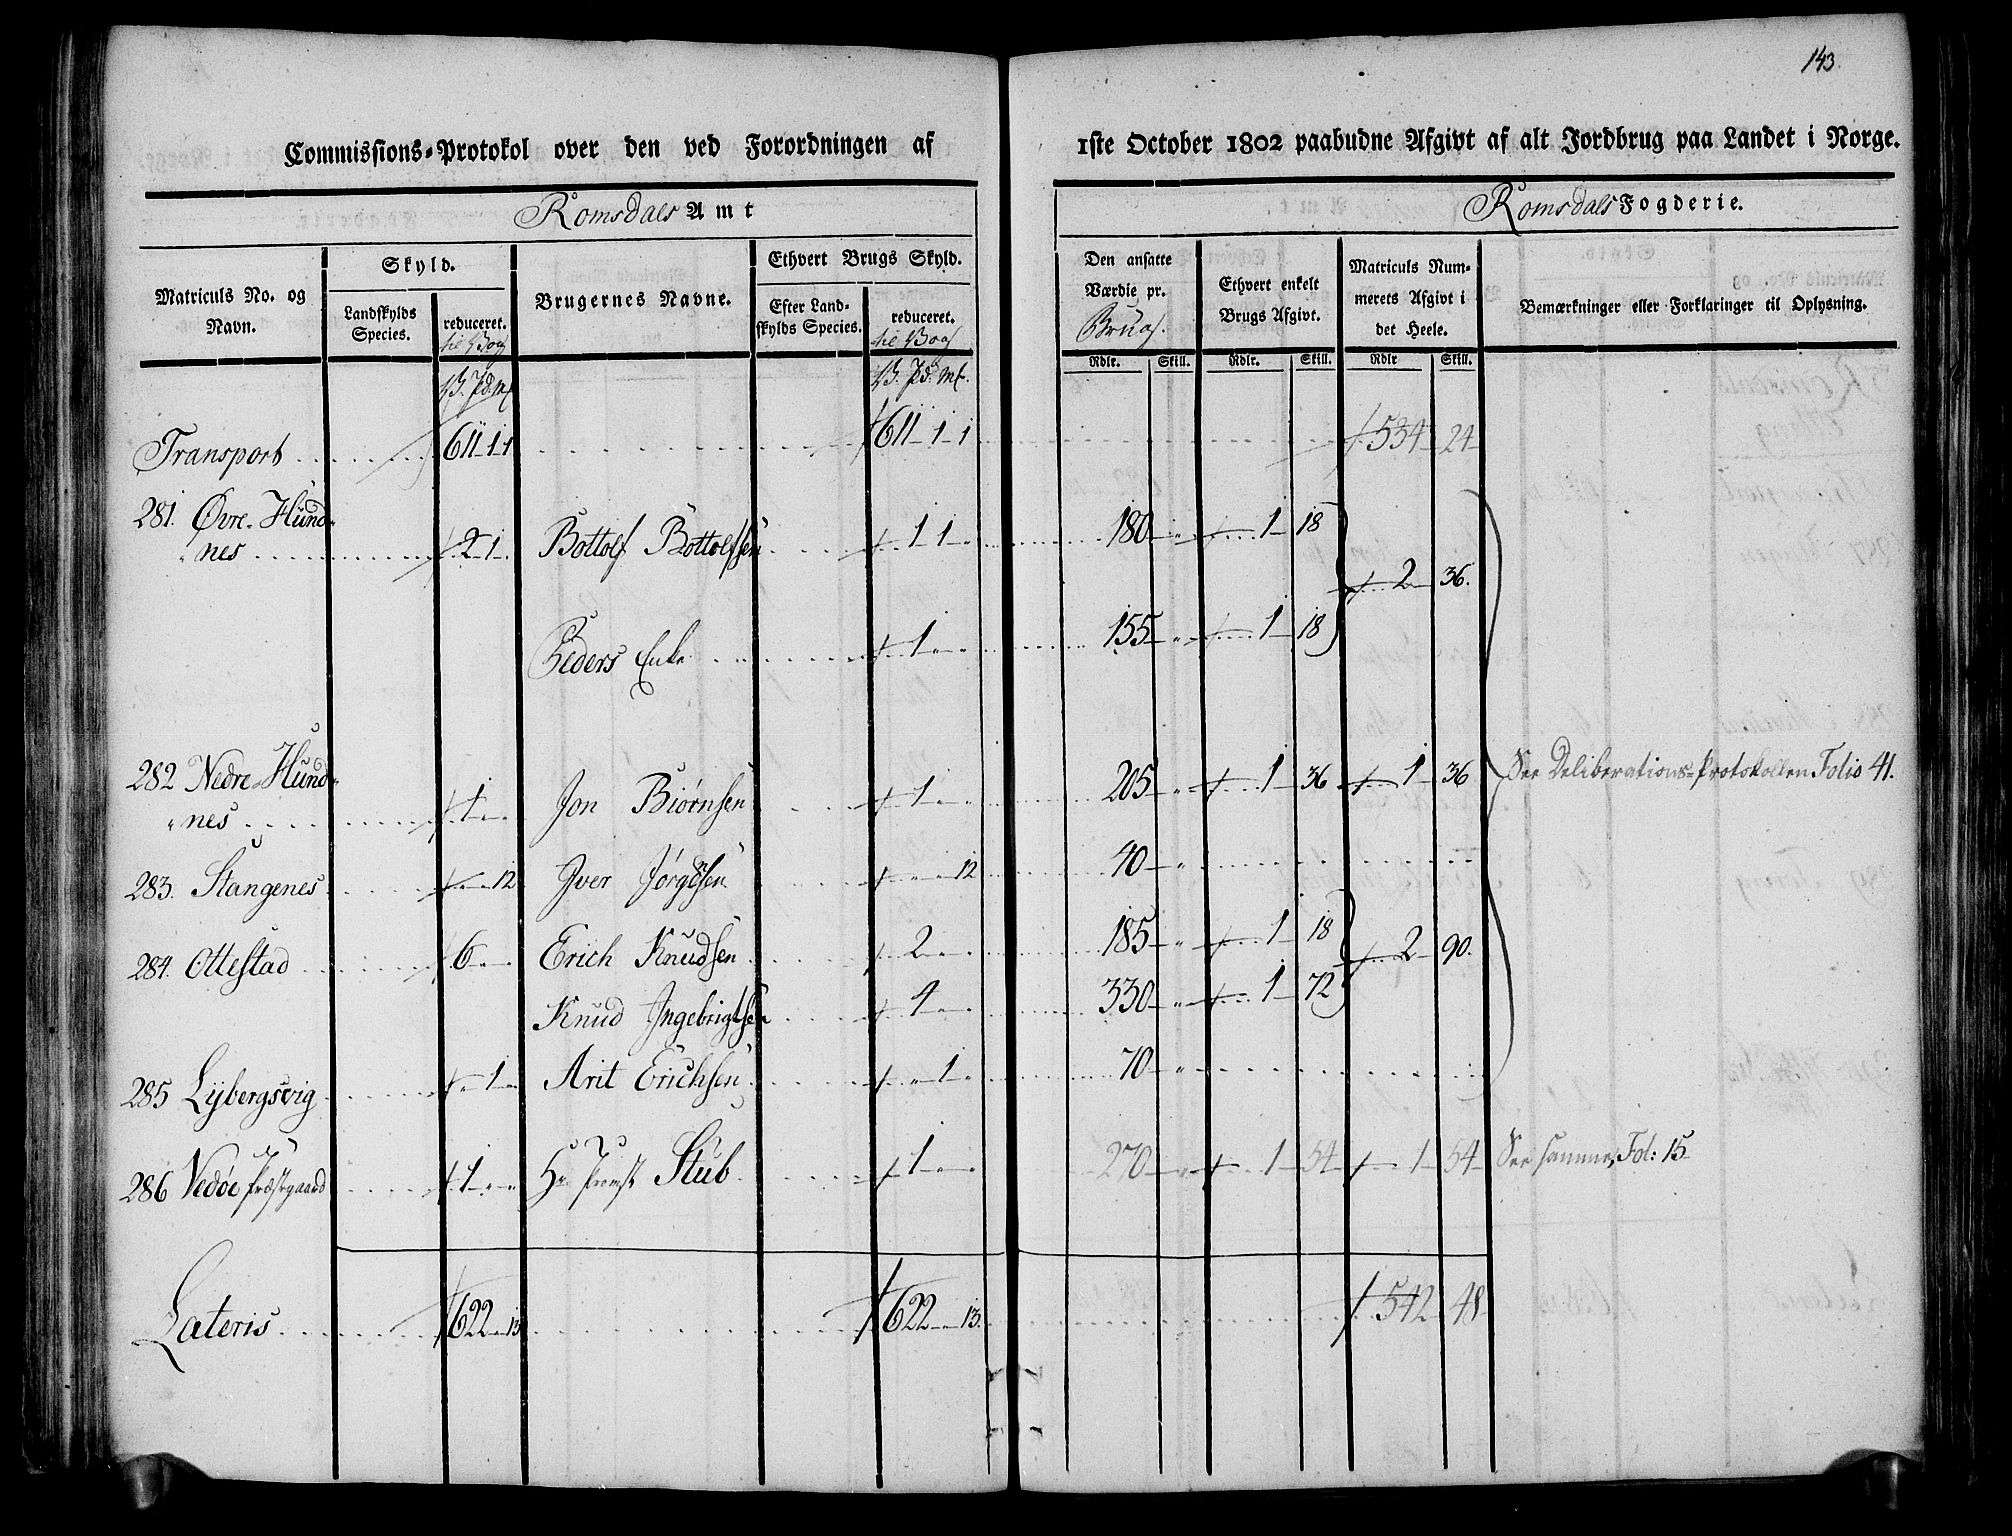 143.
Commissions-Protokol over den ved Forordningen af 1ste October 1802 paabudne Afgivt af alt Jordbrug paa Landet i Norge.
Romsdals Amt
Romsdals Fogderie.
Matriculs No. og Navn.
Skyld.
Landskylds Species.
reduceret. til Vog
Brugernes Navne.
Ethvert Brugs Skyld.
Efter Landskylds Species.
reduceret. til Vog
Den ansatte Værdie pr. Brug.
Ethvert enkelt Brugs Afgivt.
Matriculs Nummerets Afgivt i det Heele.
Bemærkninger eller Forklaringer til Oplysning.
Rdlr. Skill. Rdlr. Skill. Rdlr Skill.
V. Pd. Mk V. Pd. Mk.
Transport 611 1 1 611 1 1 534 24
281. Øvre-Hund-
nes 2 1 Bottolf Bottolfsen 1 1 180 1 18
2 36.
Peders Enke 1 155 1 18
282 Nedre-Hund-
nes 1 Jon Biørnsen 1 205 1 36 1 36 See Deliberations-Protokollen Folio 41.
283. Stangenes 12 Iver Jørgsen 12 40
284. Ottestad 6 Erich Knudsen 2 185 1 18
2 90.
Knud Ingebrigtsen 4 330 1 72
285 Lybergsvig 1 Arit Erichsen 1 70
286 Vedøe Præstgaard 1 Hr Provst Stub 1 270 1 54 1 54 See samme, Fol: 15
Lateris 622 13 622 13. 542 48